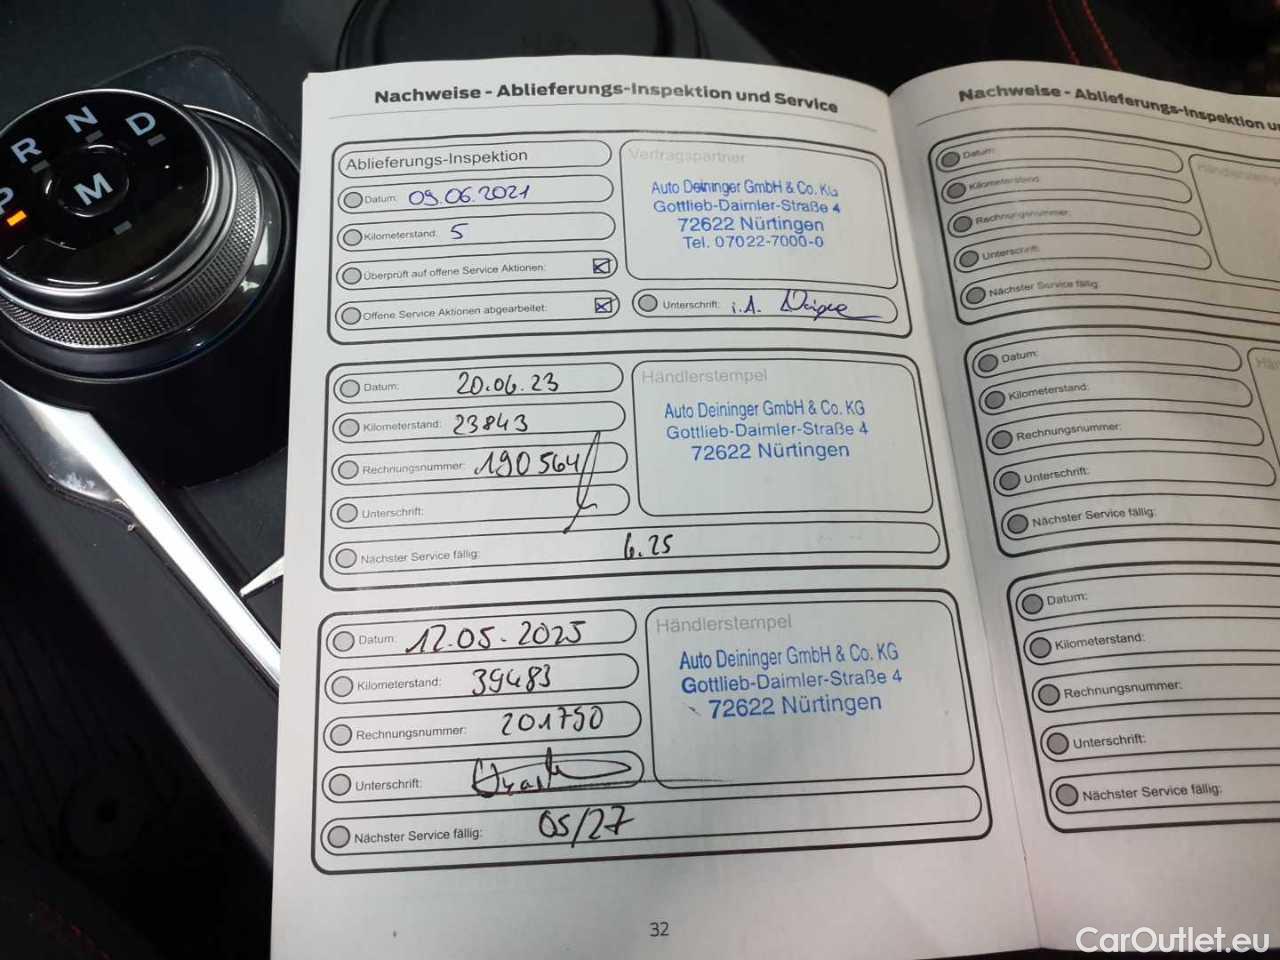 P R N D
M
Nachweise - Ablieferungs-Inspektion und Service
Ablieferungs-Inspektion
Datum: 09.06.2021
Kilometerstand: 5
Überprüft auf offene Service Aktionen:
Offene Service Aktionen abgearbeitet:
Vertragspartner
Auto Deininger GmbH & Co. KG
Gottlieb-Daimler-Straße 4
72622 Nürtingen
Tel. 07022-7000-0
Unterschrift: i.A.
Datum: 20.06.23
Kilometerstand: 23843
Rechnungsnummer: 190564
Unterschrift:
Nächster Service fällig: 6.25
Händlerstempel
Auto Deininger GmbH & Co. KG
Gottlieb-Daimler-Straße 4
72622 Nürtingen
Datum: 12.05.2025
Kilometerstand: 39483
Rechnungsnummer: 201750
Unterschrift:
Nächster Service fällig: 05/27
Händlerstempel
Auto Deininger GmbH & Co. KG
Gottlieb-Daimler-Straße 4
72622 Nürtingen
32
Nachweise - Ablieferungs-Inspektion u
Datum:
Kilometerstand:
Rechnungsnummer:
Unterschrift:
Nächster Service fällig:
Händlerstemp
Datum:
Kilometerstand:
Rechnungsnummer:
Unterschrift:
Nächster Service fällig:
Hä
Datum:
Kilometerstand:
Rechnungsnummer:
Unterschrift:
Nächster Service fällig:
CarOutlet.eu